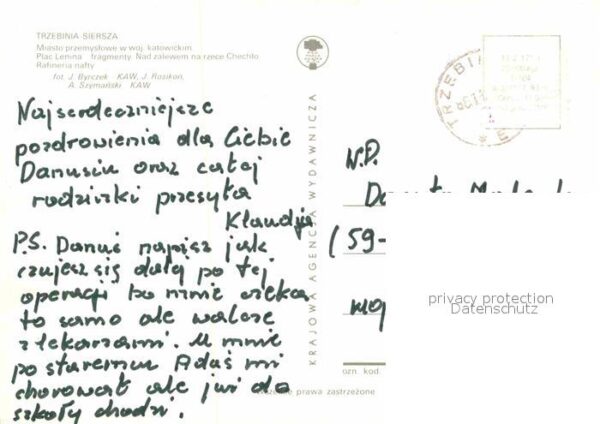 TRZEBINIA-SIERSZA
Miasto przemysłowe w woj. katowickim.
Plac Lenina fragmenty. Nad zalewem na rzece Chechło
Rafineria nafty
fot. J. Byrczek KAW, J. Rosikoń,
A. Szymański KAW
Najserdeczniejsze
pozdrowienia dla Ciebie
Danusiu oraz całej
rodzinki przesyła
Klaudja
P.S. Danuś napisz jak
czujesz się dalej po tej
operacji bo mnie czeka
to samo ale walczę
z lekarzami. U mnie
po staremu Adaś mi
chorował ale już do
szkoły chodzi.
KRAJOWA AGENCJA WYDAWNICZA
TRZEBIN
W.P.
(59-
ozn kod.
prawa zastrzeżone
privacy protection
Datenschutz